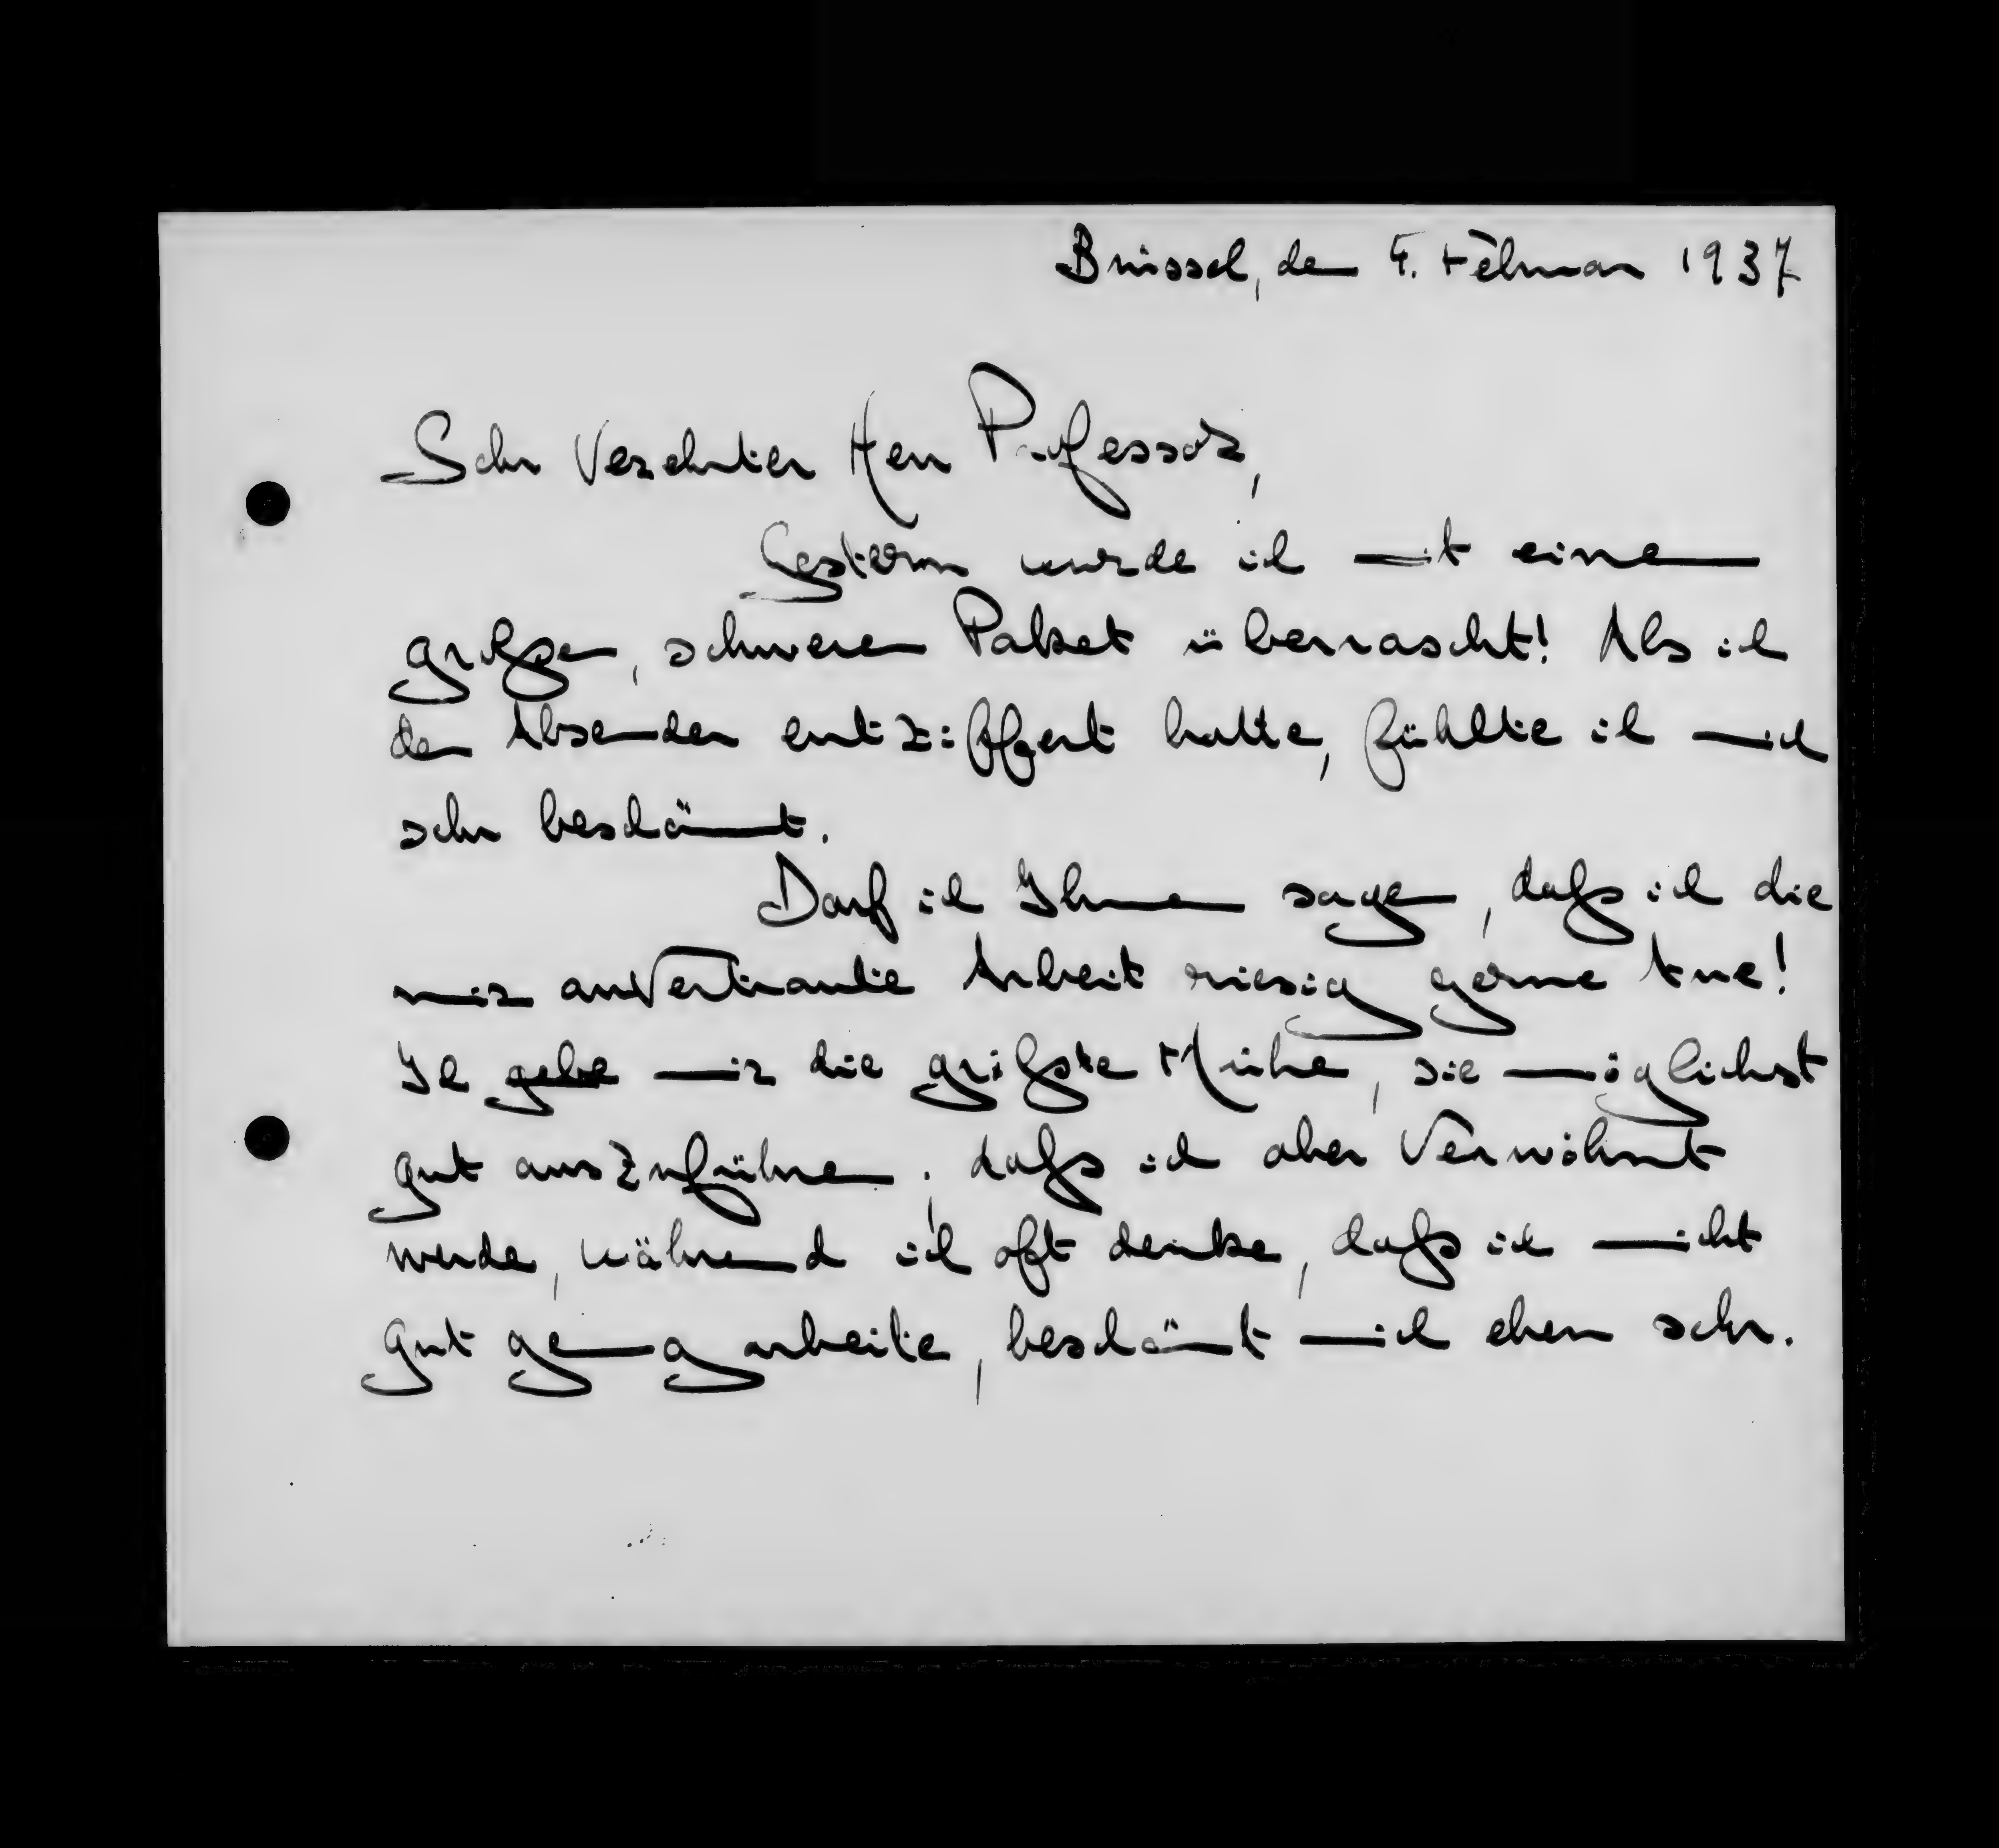 Brüssel, den 4. Februar 1937
Sehr Verehrter Herr Professor,
Gestern wurde ich mit einem
großen, schweren Paket überrascht! Als ich
den Absender entziffert hatte, fühlte ich mich
sehr beschämt.
Darf ich Ihnen sagen, daß ich die
mir anvertraute Arbeit riesig gerne tue!
Ich gebe mir die größte Mühe, sie möglichst
gut auszuführen; daß ich aber verwöhnt
werde, während ich oft denke, daß ich nicht
gut genug arbeite, beschämt mich eben sehr.